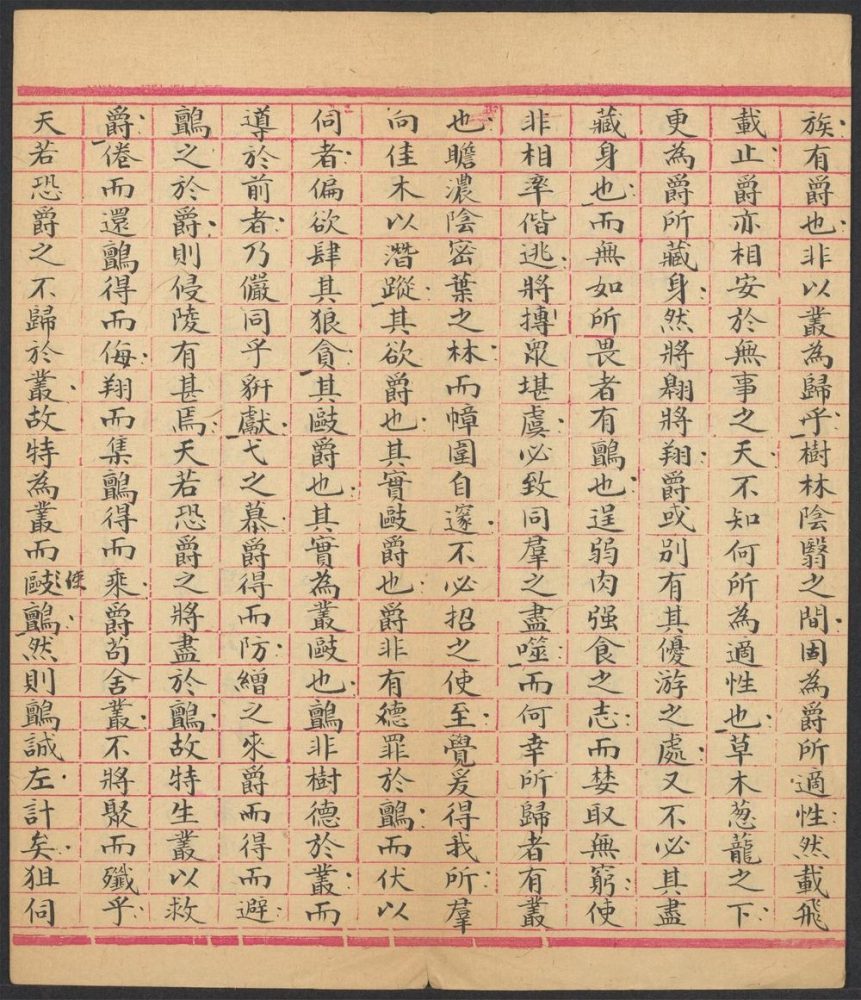 族有爵也非以叢為歸乎樹林陰翳之間固為爵所適性然載飛
載止爵亦相安於無事之天不知何所為適性也草木葱蘢之下
更為爵所藏身然將翱將翔爵或別有其優游之處又不必其盡
藏身也而無如所畏者有鸇也逞弱肉强食之志而婪取無窮使
非相率偕逃將摶眾堪虞必致同羣之盡噬而何幸所歸者有叢
也瞻濃陰密葉之林而幛圍自邃不必招之使至覺爰得我所羣
向佳木以潛蹤其欲爵也其實敺爵也爵非有德罪於鸇而伏以
伺者偏欲肆其狼貪其敺爵也其實為叢敺也鸇非樹德於叢而
導於前者乃儼同乎豜獻弋之慕爵得而防繒之來爵而得而避
鸇之於爵則侵陵有甚焉天若恐爵之將盡於鸇故特生叢以救
爵倦而還鸇得而侮翔而集鸇得而乘爵苟舍叢不將聚而殲乎
天若恐爵之不歸於叢故特為叢而敺使鸇然則鸇誠左計矣狙伺